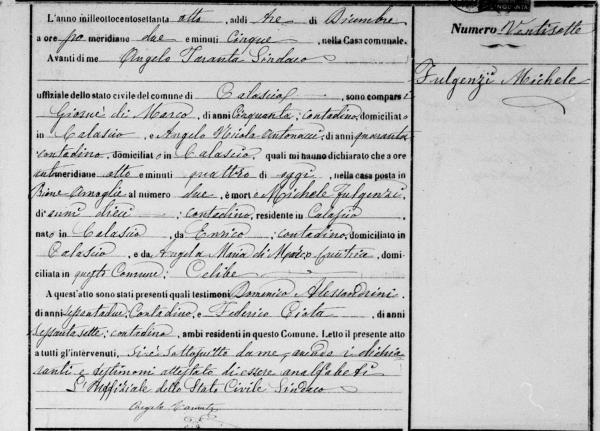 L'anno milleottocentosettanta otto, addi tre di Dicembre
a ore po meridiane due e minuti Cinque, nella Casa comunale.
Avanti di me Angelo Taranta Sindaco
uffiziale dello stato civile del comune di Calascio, sono comparsi
Giosuè di Marco, di anni Cinquanta, contadino, domiciliato
in Calascio, e Angelo Nicola Antonacci, di anni quaranta
contadino, domiciliato in Calascio, quali mi hanno dichiarato che a ore
antimeridiane otto e minuti quattro di oggi, nella casa posta in
Rione al numero due, è morto Michele Fulgenzi
di anni dieci, contadino, residente in Calascio,
nato in Calascio, da Enrico, contadino, domiciliato in
Calascio, e da Angela Maria di Marco, domi-
ciliata in questo Comune, Celibe
A quest'atto sono stati presenti quali testimoni Domenico Alessandrini
di anni sessantadue, Contadino, e Federico Ciata, di anni
sessantasette, contadino, ambi residenti in questo Comune. Letto il presente atto
a tutti gl'intervenuti, si è sottoscritto da me, avendo i dichia
ranti e testimoni attestato di essere analfabeti
L'Uffiziale dello Stato Civile Sindaco
Angelo Taranta
Numero Ventisette
Fulgenzi Michele